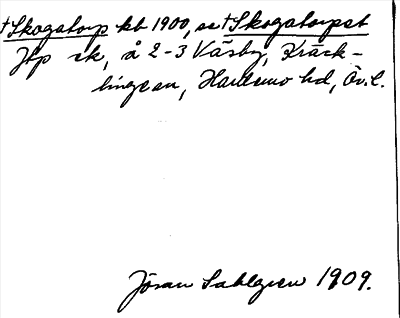 †Skogstorp kb 1900, se †Skogstorpet
Jtp sk, å 2-3 Väsby, Kräck-
linge sn, Hardemo hd, Ör. l.
Jöran Sahlgren 1909.